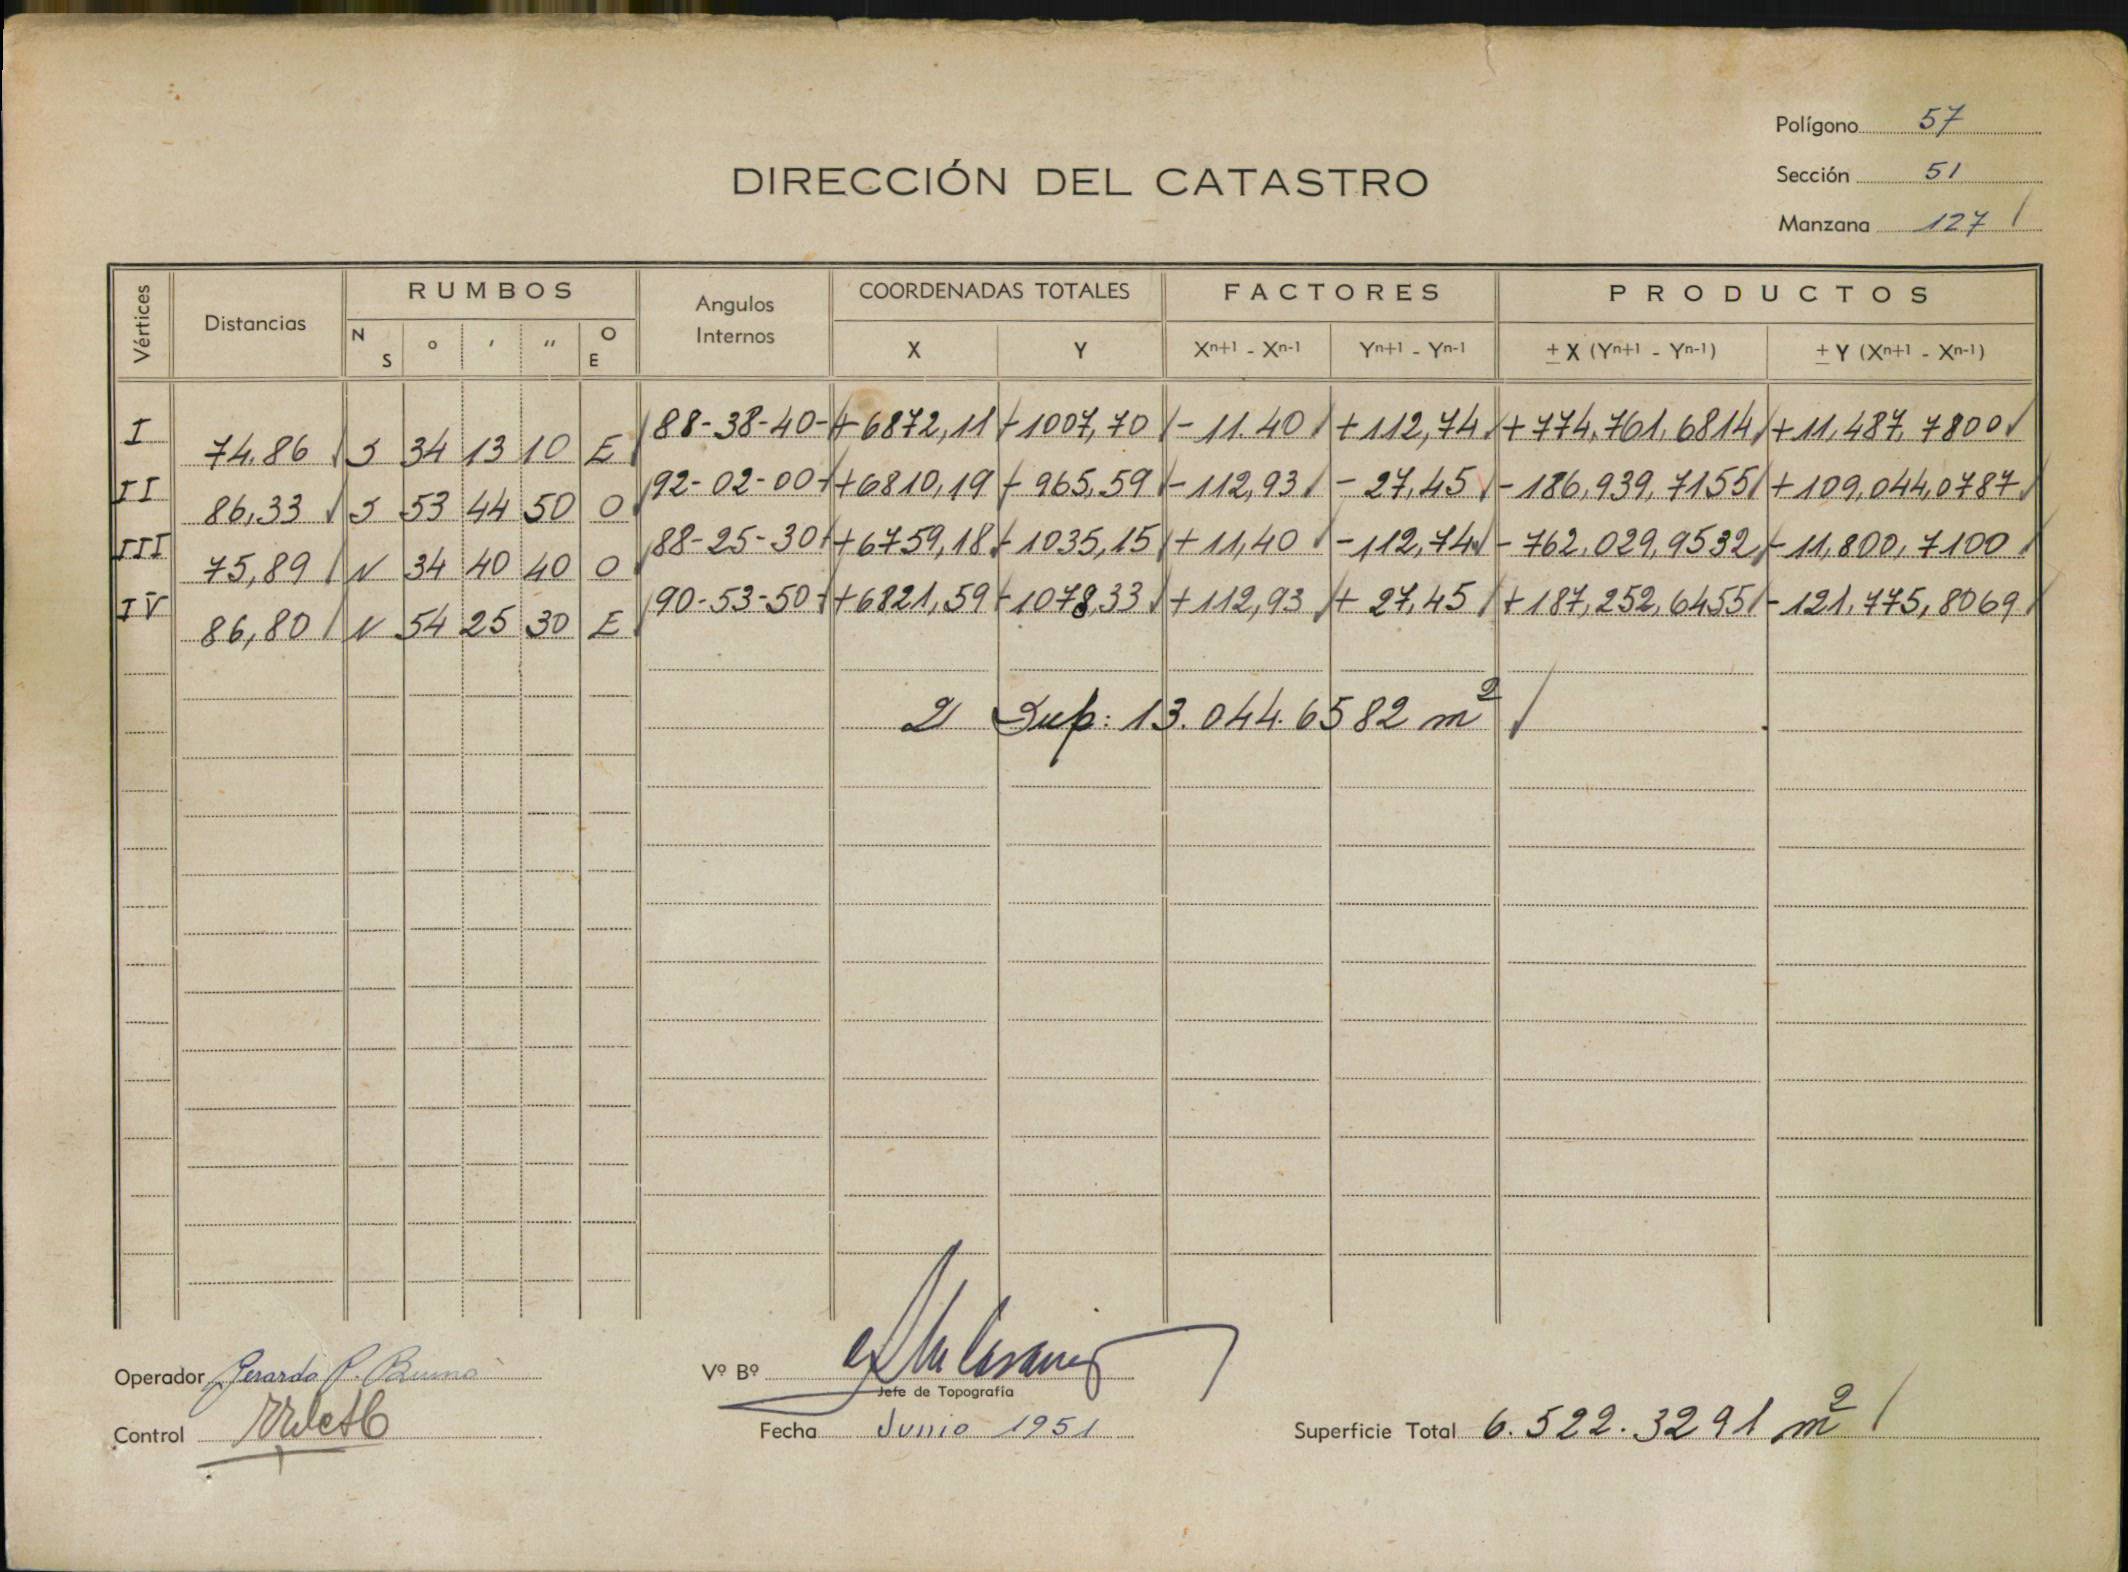 Polígono 57
DIRECCIÓN DEL CATASTRO
Sección 51
Manzana 127
Vértices Distancias RUMBOS Angulos Internos COORDENADAS TOTALES FACTORES PRODUCTOS
N S ° ' '' O E X Y Xn+1 - Xn-1 Yn+1 - Yn-1 ± X (Yn+1 - Yn-1) ± Y (Xn+1 - Xn-1)
I 74,86 S 34 13 10 E 88-38-40 +6872,11 -1007,70 -11.40 +112,74 +774,761,6814 +11,487,7800
II 86,33 S 53 44 50 O 92-02-00 +6810,19 - 965,59 -112,93 - 27,45 -186,939,7155 +109,044,0787
III 75,89 N 34 40 40 O 88-25-30 +6759,18 -1035,15 +11,40 -112,74 -762.029,9532 -11,800,7100
IV 86,80 N 54 25 30 E 90-53-50 +6821,59 -1078,33 +112,93 + 27,45 +187,252,6455 -121.775,8069
2 Sup: 13.044.6582 m2
Operador Gerardo P. Bruno Vº Bº
Jefe de Topografía
Control Fecha Junio 1951 Superficie Total 6.522.3291 m2